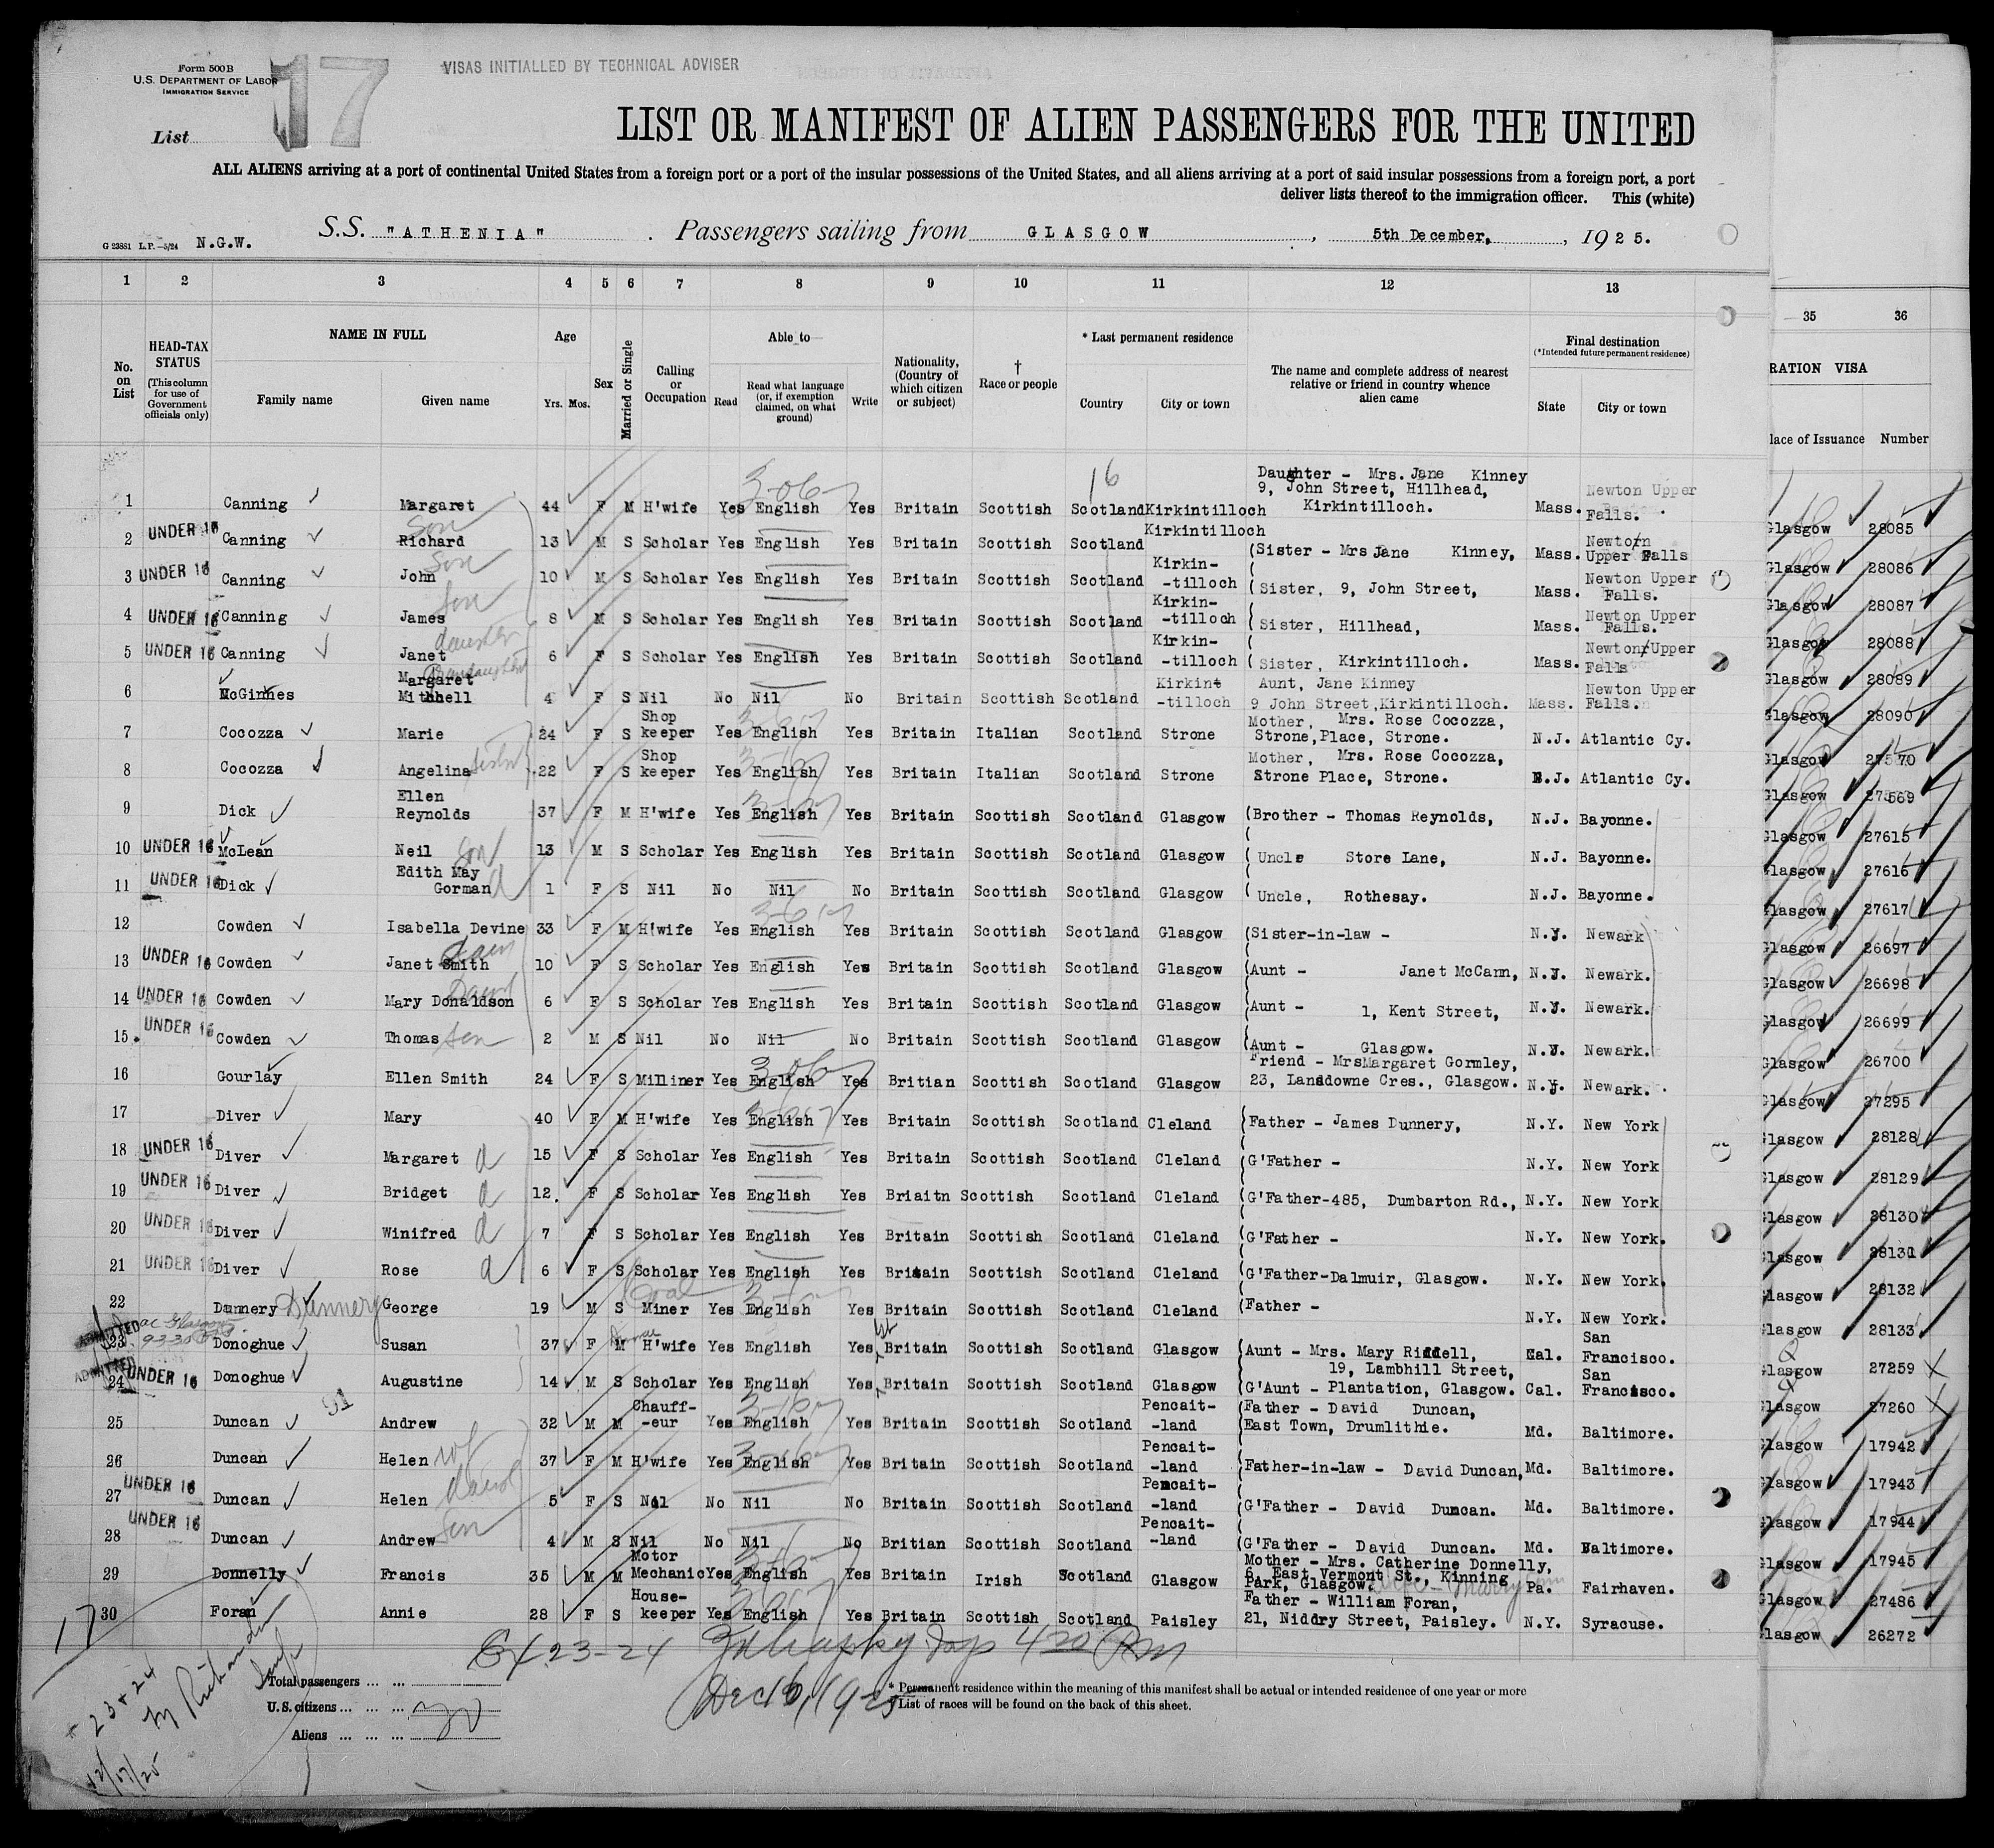 Form 500 B
U.S. DEPARTMENT OF LABOR
IMMIGRATION SERVICE
17
VISAS INITIALLED BY TECHNICAL ADVISER
List
LIST OR MANIFEST OF ALIEN PASSENGERS FOR THE UNITED
ALL ALIENS arriving at a port of continental United States from a foreign port or a port of the insular possessions of the United States, and all aliens arriving at a port of said insular possessions from a foreign port, a port
deliver lists thereof to the immigration officer. This (white)
G 23881 L.P.—5/24 N.G.W. S.S. "ATHENIA" . Passengers sailing from GLASGOW , 5th December, , 1925.
1 2 3 4 5 6 7 8 9 10 11 12 13 35 36
No. on List HEAD-TAX STATUS (This column for use of Government officials only) NAME IN FULL Family name Given name Age Yrs. Mos. Sex Married or Single Calling or Occupation Able to Read Read what language (or, if exemption claimed, on what ground) Write Nationality, (Country of which citizen or subject) † Race or people * Last permanent residence Country City or town The name and complete address of nearest relative or friend in country whence alien came Final destination (*Intended future permanent residence) State City or town RATION VISA lace of Issuance Number
16
1 Canning Margaret 44 F M H'wife Yes English Yes Britain Scottish Scotland Kirkintilloch Daughter - Mrs. Jane Kinney 9, John Street, Hillhead, Kirkintilloch. Mass. Newton Upper Falls. Glasgow 28085
2 UNDER 16 Canning Richard Son 13 M S Scholar Yes English Yes Britain Scottish Scotland Kirkintilloch (Sister - Mrs Jane Kinney, Mass. Newton Upper Falls Glasgow 28086
3 UNDER 16 Canning John Son 10 M S Scholar Yes English Yes Britain Scottish Scotland Kirkin--tilloch (Sister, 9, John Street, Mass. Newton Upper Falls. Glasgow 28087
4 UNDER 16 Canning James Son 8 M S Scholar Yes English Yes Britain Scottish Scotland Kirkin--tilloch (Sister, Hillhead, Mass. Newton Upper Falls. Glasgow 28088
5 UNDER 16 Canning Janet daughter 6 F S Scholar Yes English Yes Britain Scottish Scotland Kirkin--tilloch (Sister, Kirkintilloch. Mass. Newton Upper Falls Glasgow 28089
6 McGinnes Margaret Mithhell Grandaughter 4 F S Nil No Nil No Britain Scottish Scotland Kirkint -tilloch Aunt, Jane Kinney 9 John Street, Kirkintilloch. Mass. Newton Upper Falls. Glasgow 28090
7 Cocozza Marie 24 F S Shop keeper Yes English Yes Britain Italian Scotland Strone Mother, Mrs. Rose Cocozza, Strone, Place, Strone. N.J. Atlantic Cy. Glasgow 27570
8 Cocozza Angelina sister 22 F S Shop keeper Yes English Yes Britain Italian Scotland Strone Mother, Mrs. Rose Cocozza, Strone Place, Strone. N.J. Atlantic Cy. Glasgow 27569
9 Dick Ellen Reynolds 37 F M H'wife Yes English Yes Britain Scottish Scotland Glasgow (Brother - Thomas Reynolds, N.J. Bayonne. Glasgow 27615
10 UNDER 16 McLean Neil son 13 M S Scholar Yes English Yes Britain Scottish Scotland Glasgow ( Uncle Store Lane, N.J. Bayonne. Glasgow 27616
11 UNDER 16 Dick Edith May Gorman d 1 F S Nil No Nil No Britain Scottish Scotland Glasgow ( Uncle, Rothesay. N.J. Bayonne. Glasgow 27617
12 Cowden Isabella Devine 33 F M H'wife Yes English Yes Britain Scottish Scotland Glasgow (Sister-in-law - N.J. Newark Glasgow 26697
13 UNDER 16 Cowden Janet Smith 10 F S Scholar Yes English Yes Britain Scottish Scotland Glasgow (Aunt - Janet McCann, N.J. Newark. Glasgow 26698
14 UNDER 16 Cowden Mary Donaldson 6 F S Scholar Yes English Yes Britain Scottish Scotland Glasgow (Aunt - 1, Kent Street, N.J. Newark. Glasgow 26699
15. UNDER 16 Cowden Thomas son 2 M S Nil No Nil No Britain Scottish Scotland Glasgow (Aunt - Glasgow. N.J. Newark. Glasgow 26700
16 Gourlay Ellen Smith 24 F S Milliner Yes English Yes Britian Scottish Scotland Glasgow Friend - Mrs Margaret Gormley, 23, Lansdowne Cres., Glasgow. N.J. Newark. Glasgow 27295
17 Diver Mary 40 F M H'wife Yes English Yes Britain Scottish Scotland Cleland (Father - James Dunnery, N.Y. New York Glasgow 28128
18 UNDER 16 Diver Margaret d 15 F S Scholar Yes English Yes Britain Scottish Scotland Cleland (G'Father - N.Y. New York Glasgow 28129
19 UNDER 16 Diver Bridget d 12. F S Scholar Yes English Yes Briaitn Scottish Scotland Cleland (G'Father-485, Dumbarton Rd., N.Y. New York Glasgow 28130
20 UNDER 16 Diver Winifred d 7 F S Scholar Yes English Yes Britain Scottish Scotland Cleland (G'Father - N.Y. New York. Glasgow 28131
21 UNDER 16 Diver Rose d 6 F S Scholar Yes English Yes Britain Scottish Scotland Cleland (G'Father-Dalmuir, Glasgow. N.Y. New York. Glasgow 28132
22 Dannery Dunnery George 19 M S Coal Miner Yes English Yes Britain Scottish Scotland Cleland (Father - N.Y. New York. Glasgow 28133
ADMITTED 23 Donoghue Susan 37 F M H'wife Yes English Yes Britain Scottish Scotland Glasgow (Aunt - Mrs. Mary Riddell, 19, Lambhill Street, Cal. San Francisco. Glasgow 27259
ADMITTED 24 UNDER 16 Donoghue Augustine 14 M S Scholar Yes English Yes Britain Scottish Scotland Glasgow (G'Aunt - Plantation, Glasgow. Cal. San Francisco. Glasgow 27260
25 Duncan Andrew 32 M M Chauff--eur Yes English Yes Britain Scottish Scotland Pencait--land (Father - David Duncan, (East Town, Drumlithie. Md. Baltimore. Glasgow 17942
26 Duncan Helen wf 37 F M H'wife Yes English Yes Britain Scottish Scotland Pencait--land (Father-in-law - David Duncan, Md. Baltimore. Glasgow 17943
27 UNDER 16 Duncan Helen 5 F S Nil No Nil No Britain Scottish Scotland Pencait--land (G'Father - David Duncan. Md. Baltimore. Glasgow 17944
28 UNDER 16 Duncan Andrew Son 4 M S Nil No Nil No Britian Scottish Scotland Pencait--land (G'Father - David Duncan. Md. Baltimore. Glasgow 17945
29 Donnelly Francis 35 M M Motor Mechanic Yes English Yes Britain Irish Scotland Glasgow Mother - Mrs. Catherine Donnelly, 6, East Vermont St., Kinning Park, Glasgow. Pa. Fairhaven. Glasgow 27486
30 Foran Annie 28 F S House-keeper Yes English Yes Britain Scottish Scotland Paisley Father - William Foran, 21, Niddry Street, Paisley. N.Y. Syracuse. Glasgow 26272
17
Ex 23-24 4 20 PM
Dec 16, 1925
23 + 24
12/17/25
Total passengers ... ...
U.S. citizens ... ... ...
Aliens ... ... ...
30
* Permanent residence within the meaning of this manifest shall be actual or intended residence of one year or more
† List of races will be found on the back of this sheet.